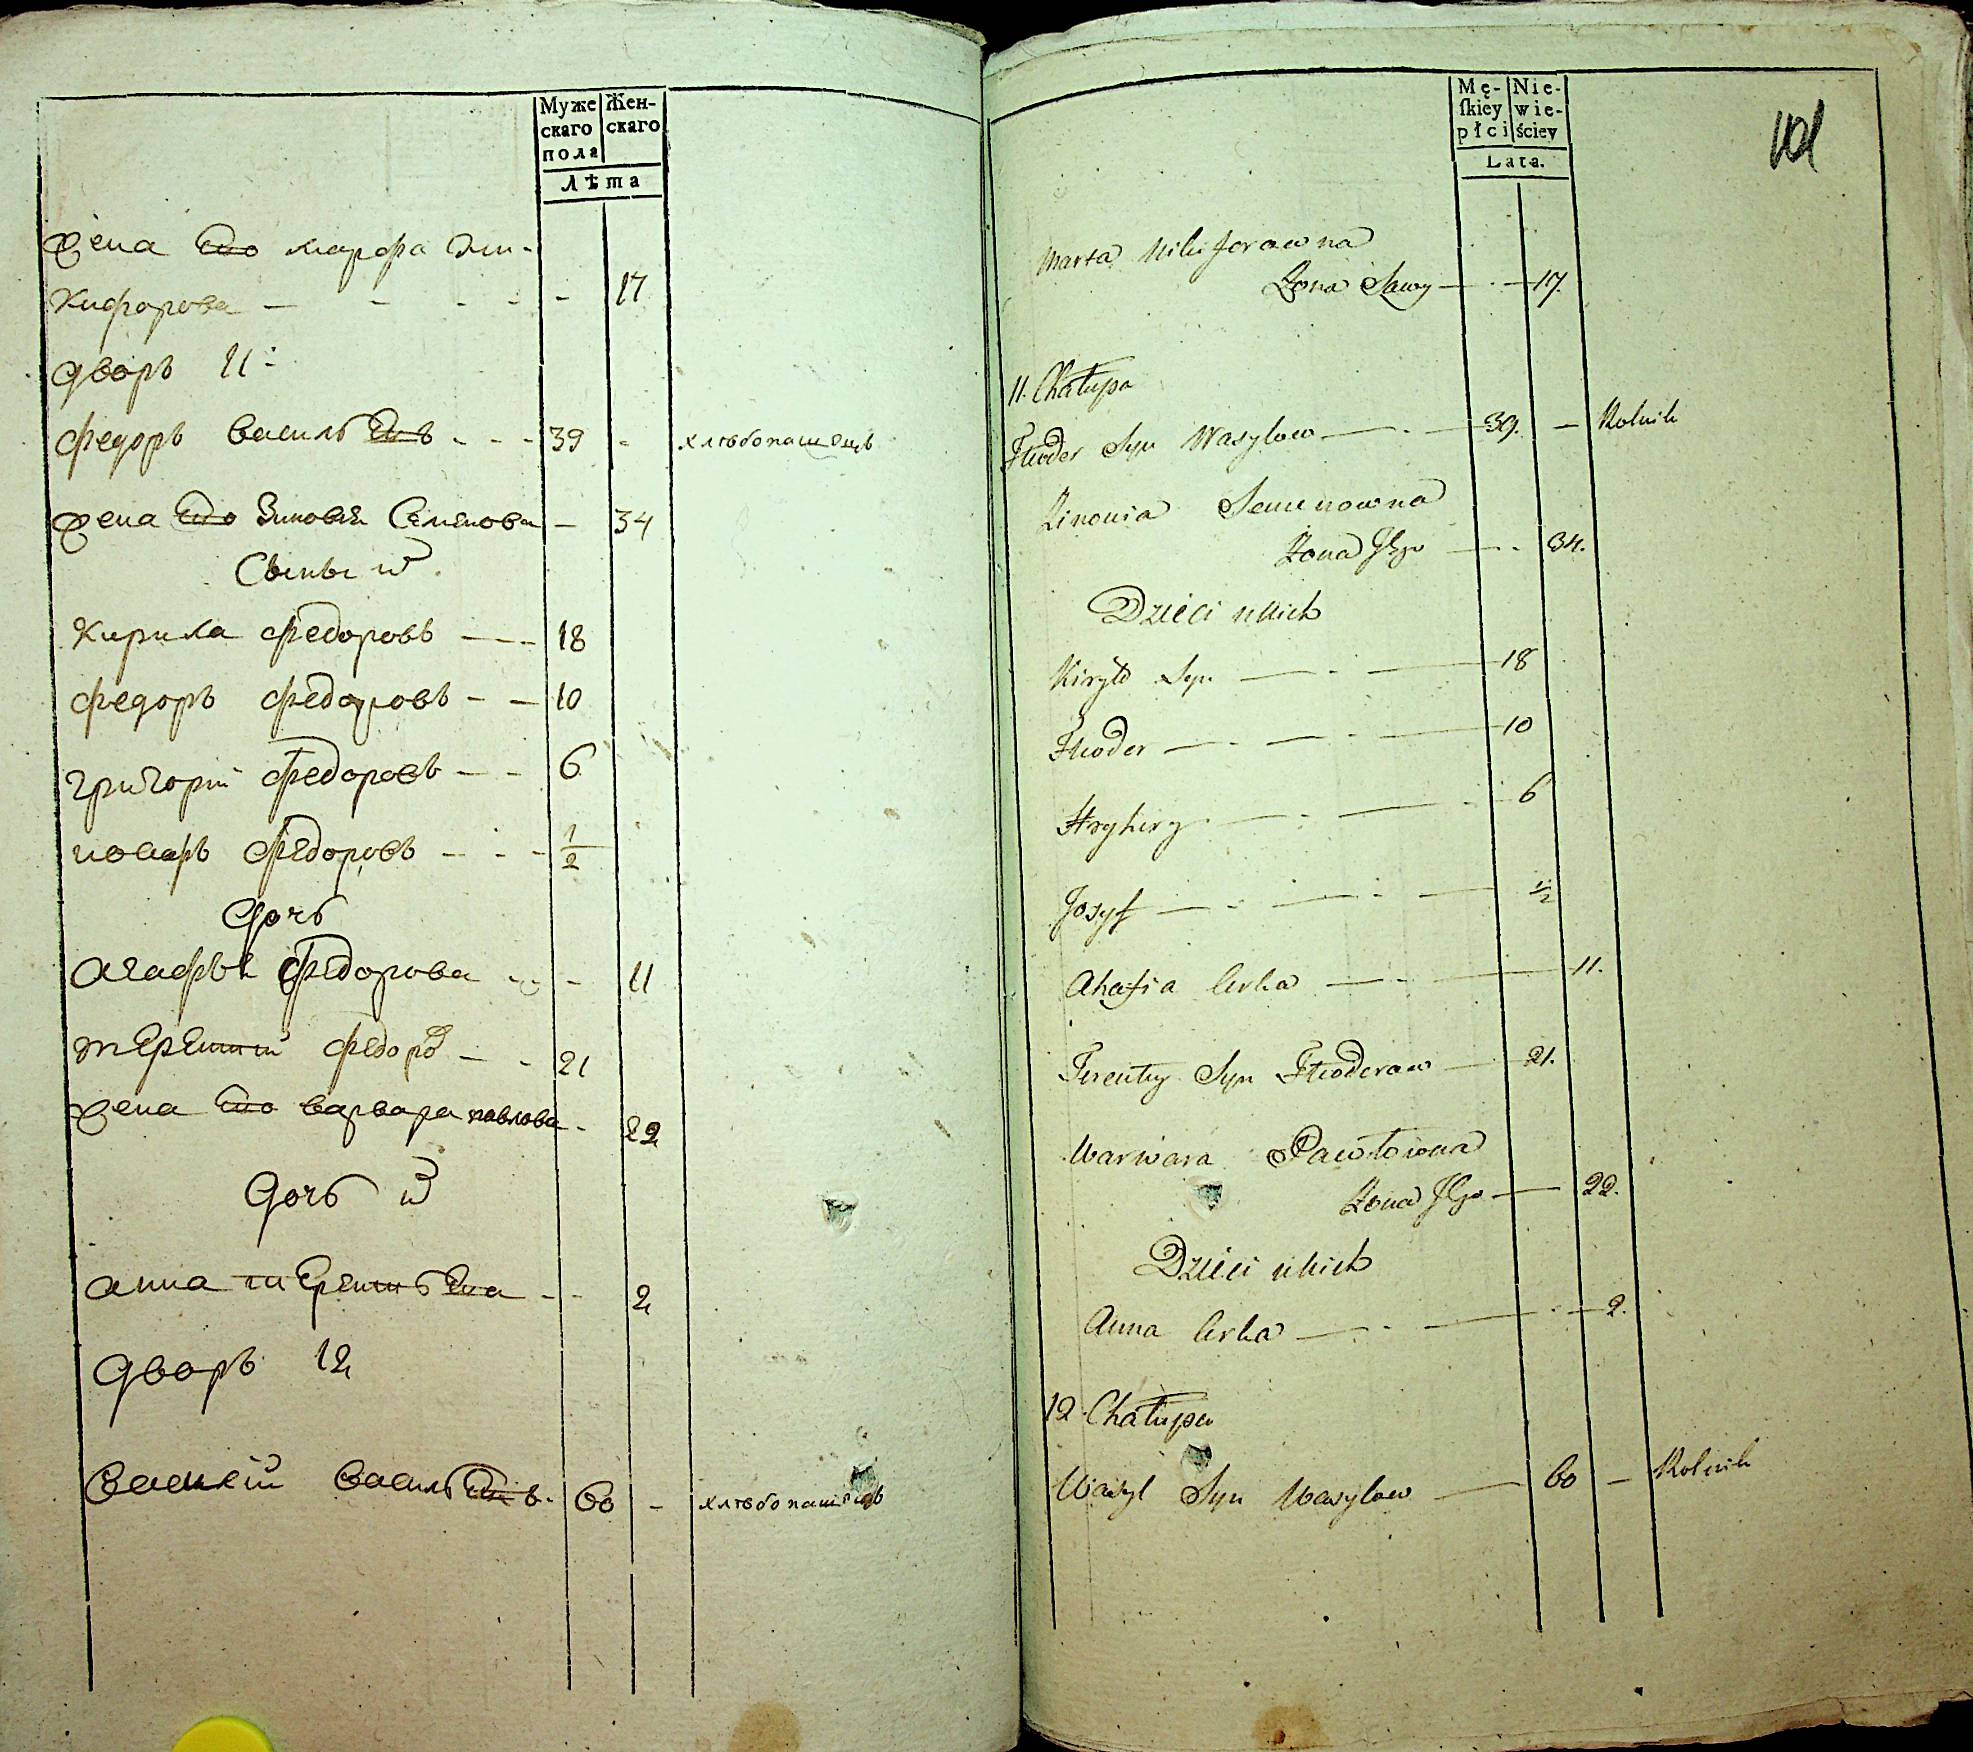 Муже
скаго
пола
Жен-
скаго
Лѣта
Жена Его марфа Ни-
кифорова — - - - - 17
дворъ 11:
федоръ василь Евъ - - - 39 - хлѣбопашецъ
Жена Его Зиновья Семенова — 34
Сыны их
Кирила федоровъ — - - 18
федоръ федоровъ - — 10
григорій федоровъ — - 6
иосифъ федоровъ - - - 1/2
Дочь
Агафья федорова - - - 11
терентий федоров — - 21
Жена Его варвара павлова - 22
Дочь их
анна терентьЕва - - 2
дворъ 12
василій василь Евъ - 60 - хлѣбопашецъ
Mę-
ſkiey
płci
Nie-
wie-
ściey
Lata.
101
Marta Nikiforowna
Żona Sawy — · — 17.
11. Chałupa
Fteoder Syn Wasylow — · — 39. — Rolnik
Zinowia Semenowna
Żona Jego — · 34.
Dzieci u Nich
Kiryło Syn — · — 18
Fteoder — · — · — 10
Hryhory · — · — · 6
Josyf — · — · — 1/2
Ahafia Corka — · — 11.
Terenty Syn Fteoderow — 21.
Warwara Pawłowna
Żona Jego — 22.
Dzieci u Nich
Anna Corka — · — · — 2.
12. Chałupa
Wasyl Syn Wasylow — 60 — Rolnik